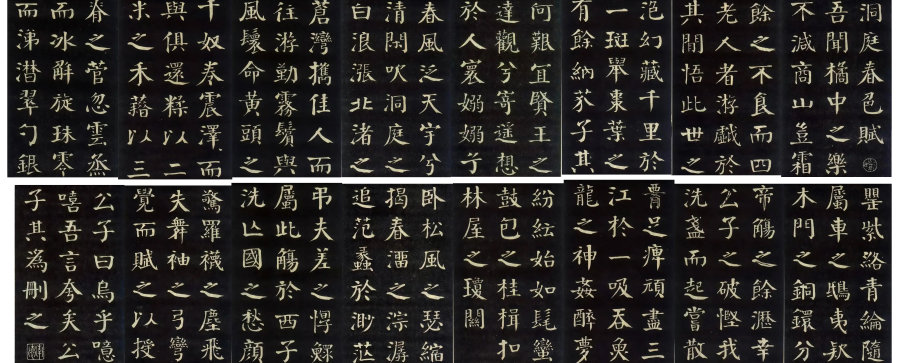 洞庭春色賦
吾聞橘中之樂
不減商山豈霜
餘之不食而四
老人者游戲於
其間悟此世之
泡幻藏千里於
一斑舉棗葉之
有餘納芥子其
何艱宜賢王之
達觀兮寄遥想
於人寰嫋嫋兮
春風泛天宇兮
清閑吹洞庭之
白浪漲北渚之
蒼灣攜佳人而
往游勤霧鬢與
風鬟命黃頭之
千奴卷震澤而
與俱還糅以二
米之禾藉以三
脊之菅忽雲烝
而冰解旋珠零
而涕潸翠勺銀
罌紫絡青綸隨
屬車之鴟夷款
木門之銅鐶分
帝觴之餘瀝幸
公子之破慳我
洗盞而起嘗散
足痺頑盡三
江於一吸吞魚
龍之神姦醉夢
紛紜始如髦蠻
鼓包之桂楫扣
林屋之瓊關
臥松風之瑟縮
揭春溜之淙潺
追范蠡於渺茫
弔夫差之惸鰥
屬此觴於西子
洗亡國之愁顏
驚羅襪之塵飛
失舞袖之弓彎
覺而賦之以授
公子曰烏乎噫
嘻吾言夸矣公
子其為刪之